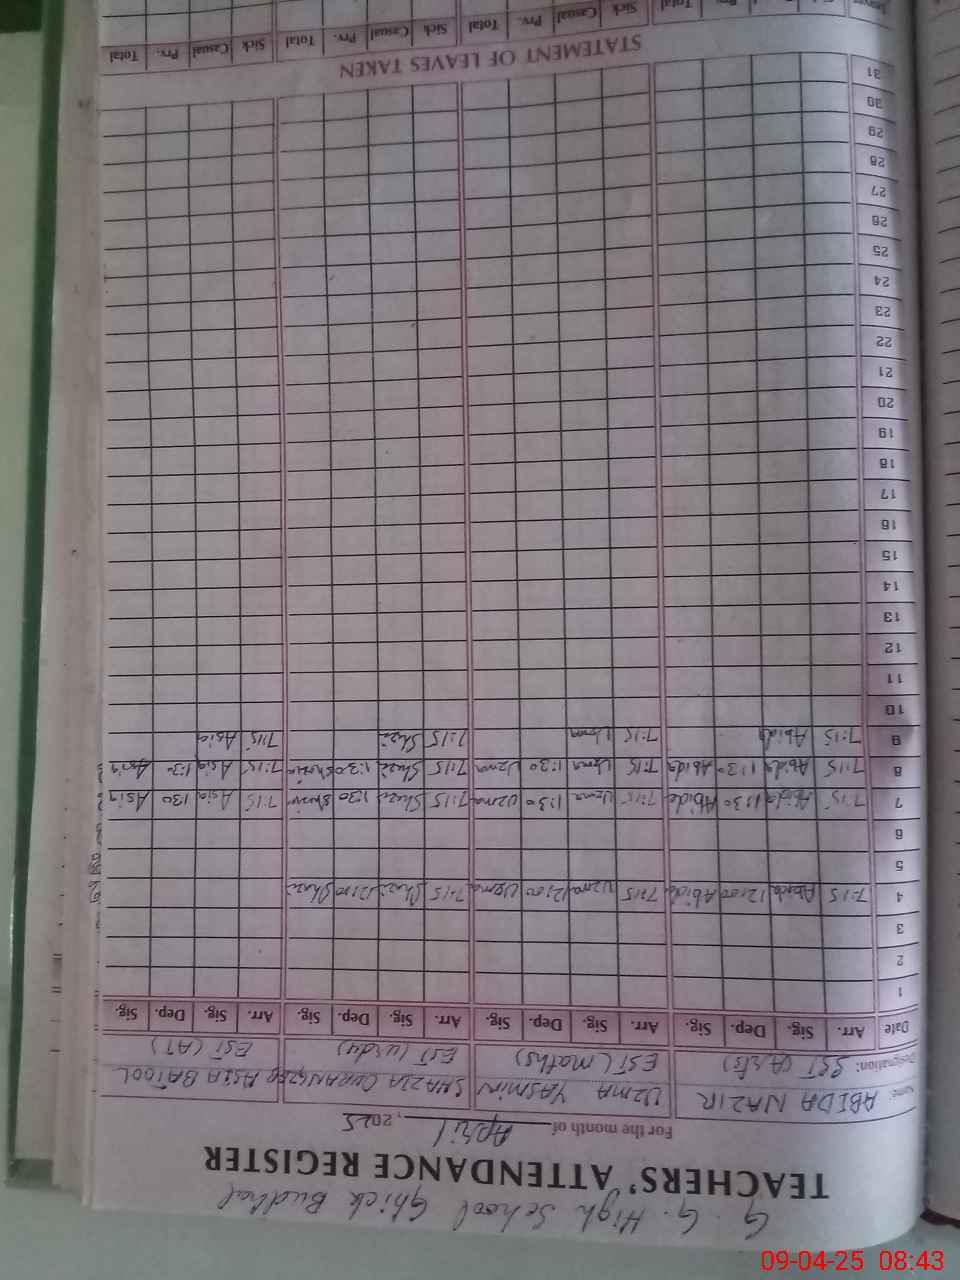 G. G. High School Ghick Budhal
TEACHERS' ATTENDANCE REGISTER
For the month of April, 2025
Name: ABIDA NAZIR UZMA YASMIN SHAZIA ORANGZEB ASIA BATOOL
Designation: SST (Arts) EST (Maths) EST (urdu) EST (AT)
Date Arr. Sig. Dep. Sig. Arr. Sig. Dep. Sig. Arr. Sig. Dep. Sig. Arr. Sig. Dep. Sig.
1
2
3
4 7:15 Abida 12:00 Abida 7:15 Uzma 12:00 Uzma 7:15 Shazi 12:00 Shazi
5
6
7 7:15 Abida 1:30 Abida 7:15 Uzma 1:30 Uzma 7:15 Shazi 1:30 Shazi 7:15 Asia 1:30 Asia
8 7:15 Abida 1:30 Abida 7:15 Uzma 1:30 Uzma 7:15 Shazi 1:30 Shazia 7:15 Asia 1:30 Asia
9 7:15 Abida 7:15 Uzma 7:15 Shazi 7:15 Asia
10
11
12
13
14
15
16
17
18
19
20
21
22
23
24
25
26
27
28
29
30
31
STATEMENT OF LEAVES TAKEN
Sick Casual Prv. Total Sick Casual Prv. Total Sick Casual Prv. Total
09-04-25 08:43